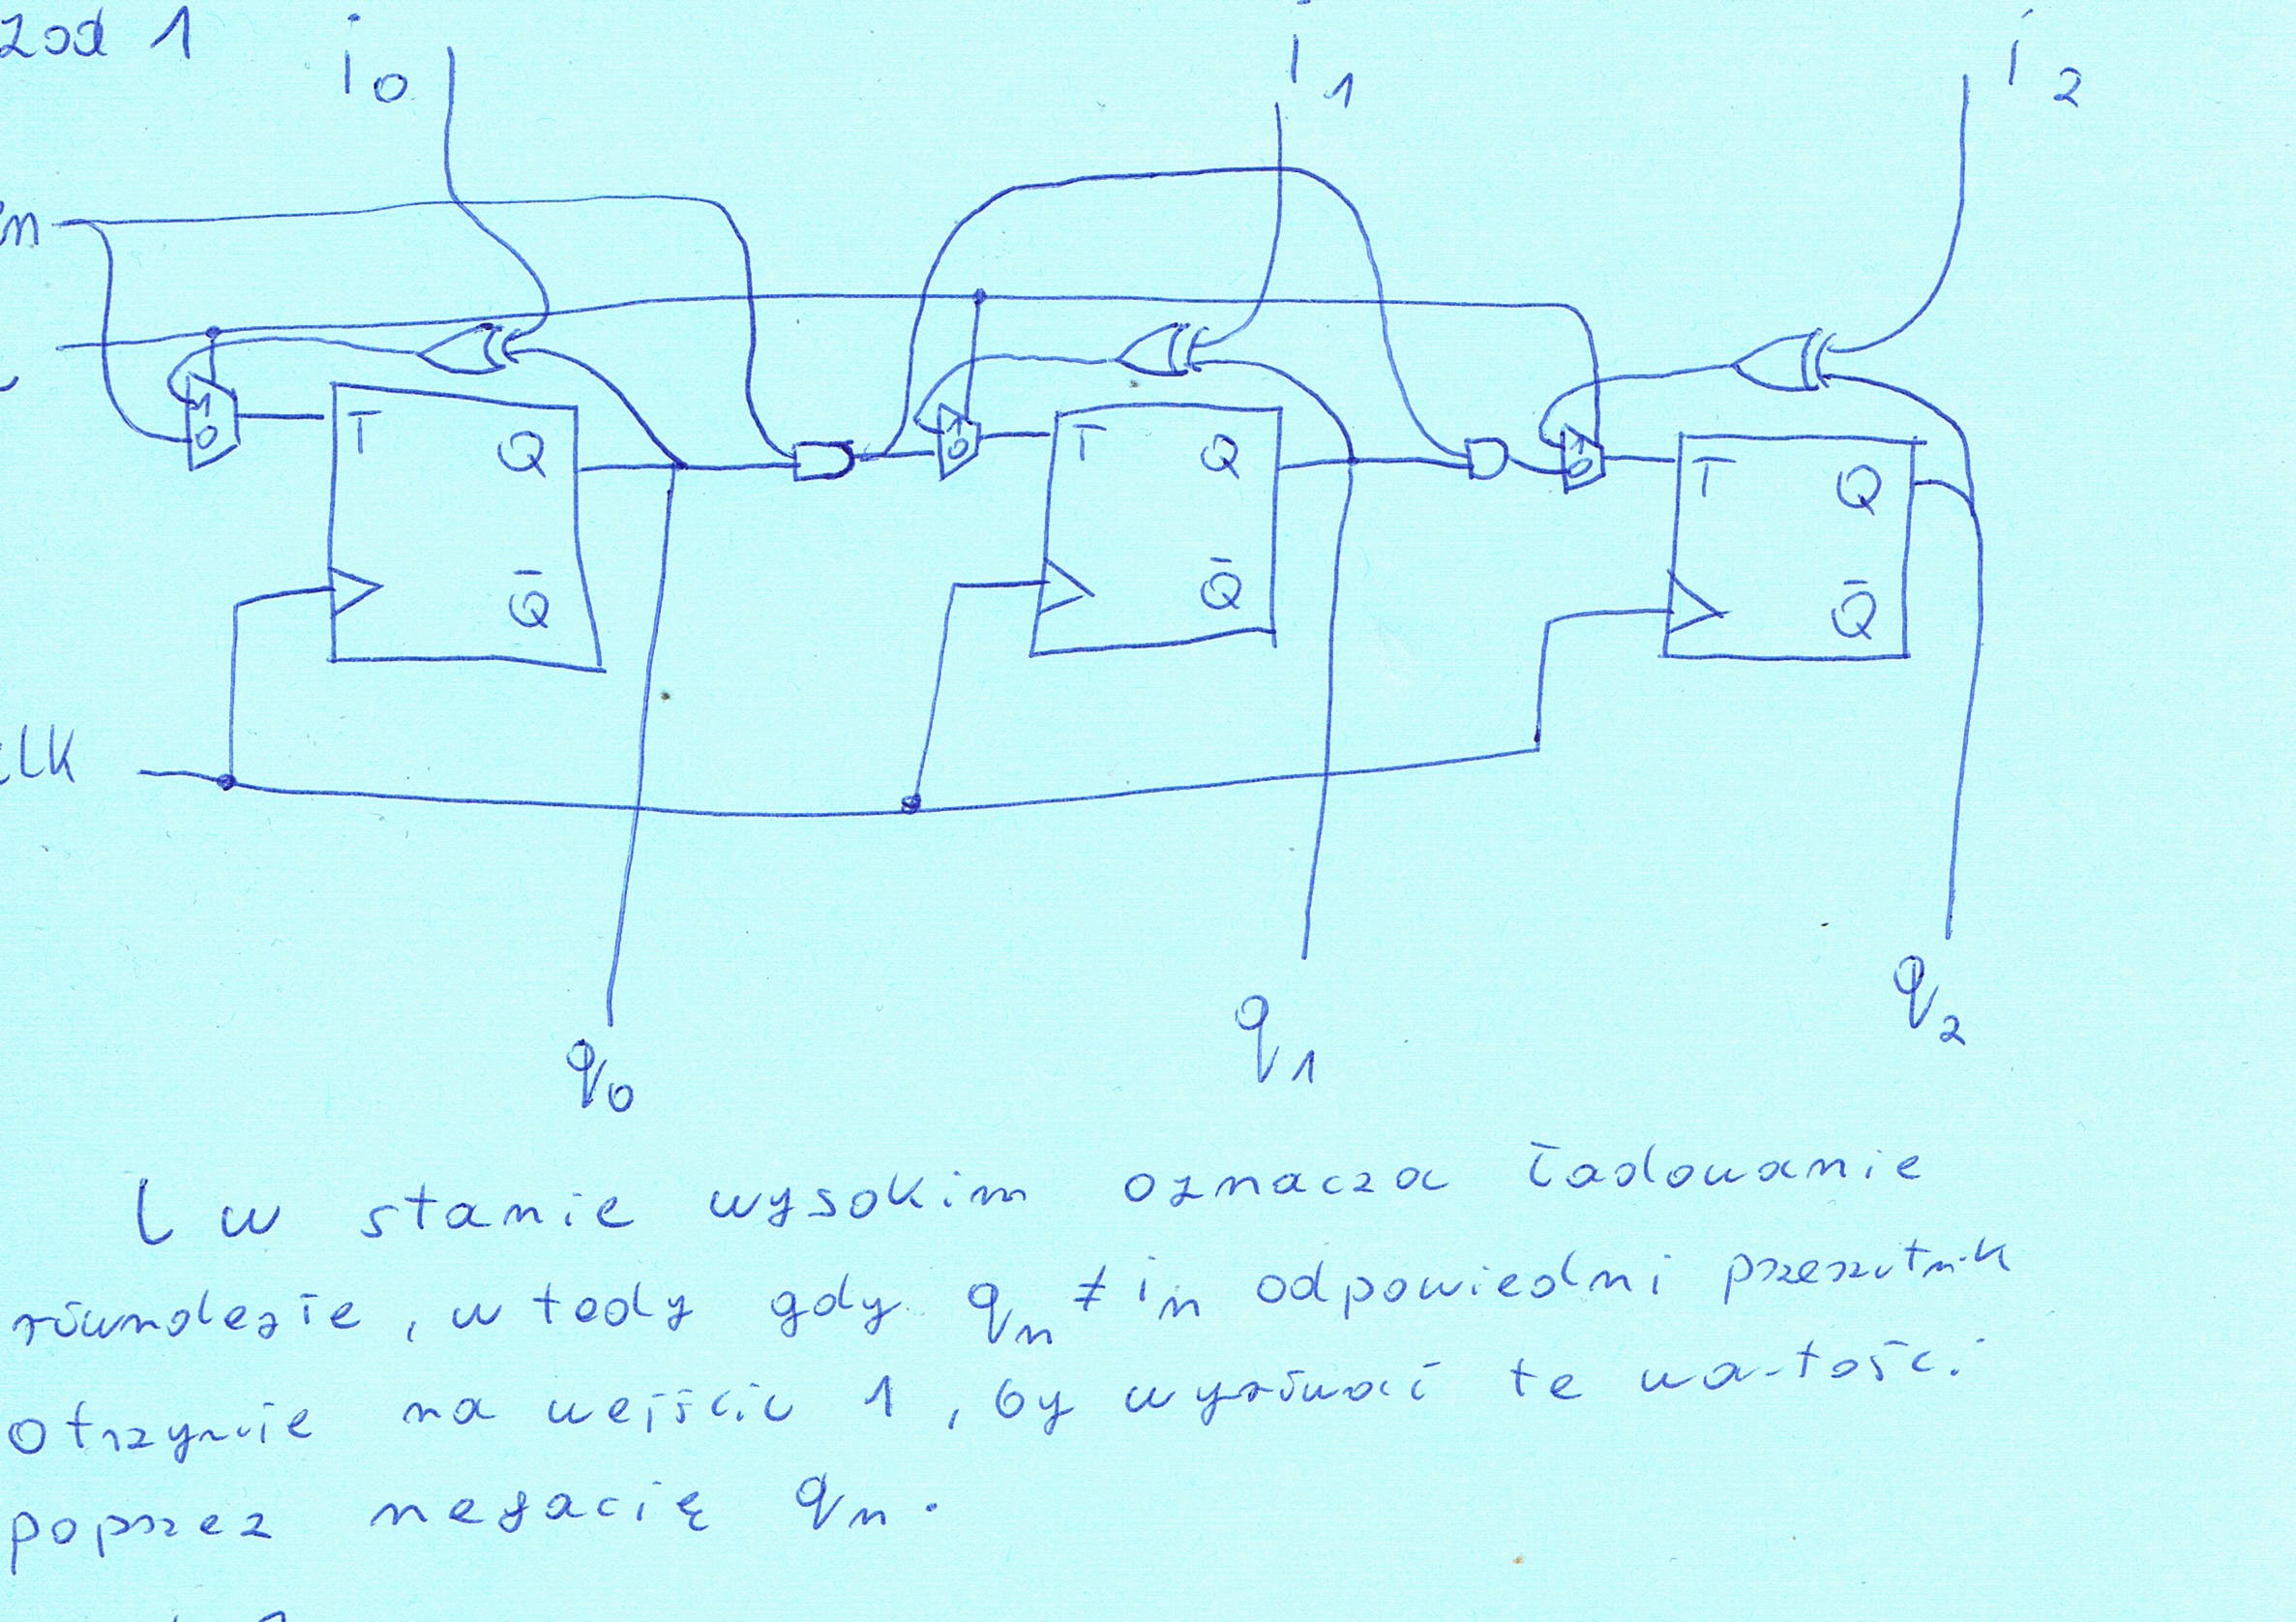 zad 1
i0 i1 i2
n
1 1 1
T Q T Q T Q
0 0 0
Q̄ Q̄ Q̄
clk
q0 q1 q2
l w stanie wysokim oznacza ładowanie
równoległe, wtedy gdy qn ≠ in odpowiedni przerzutnik
otrzymuje na wejściu 1, by wyrównać te wartości
poprzez negację qn.